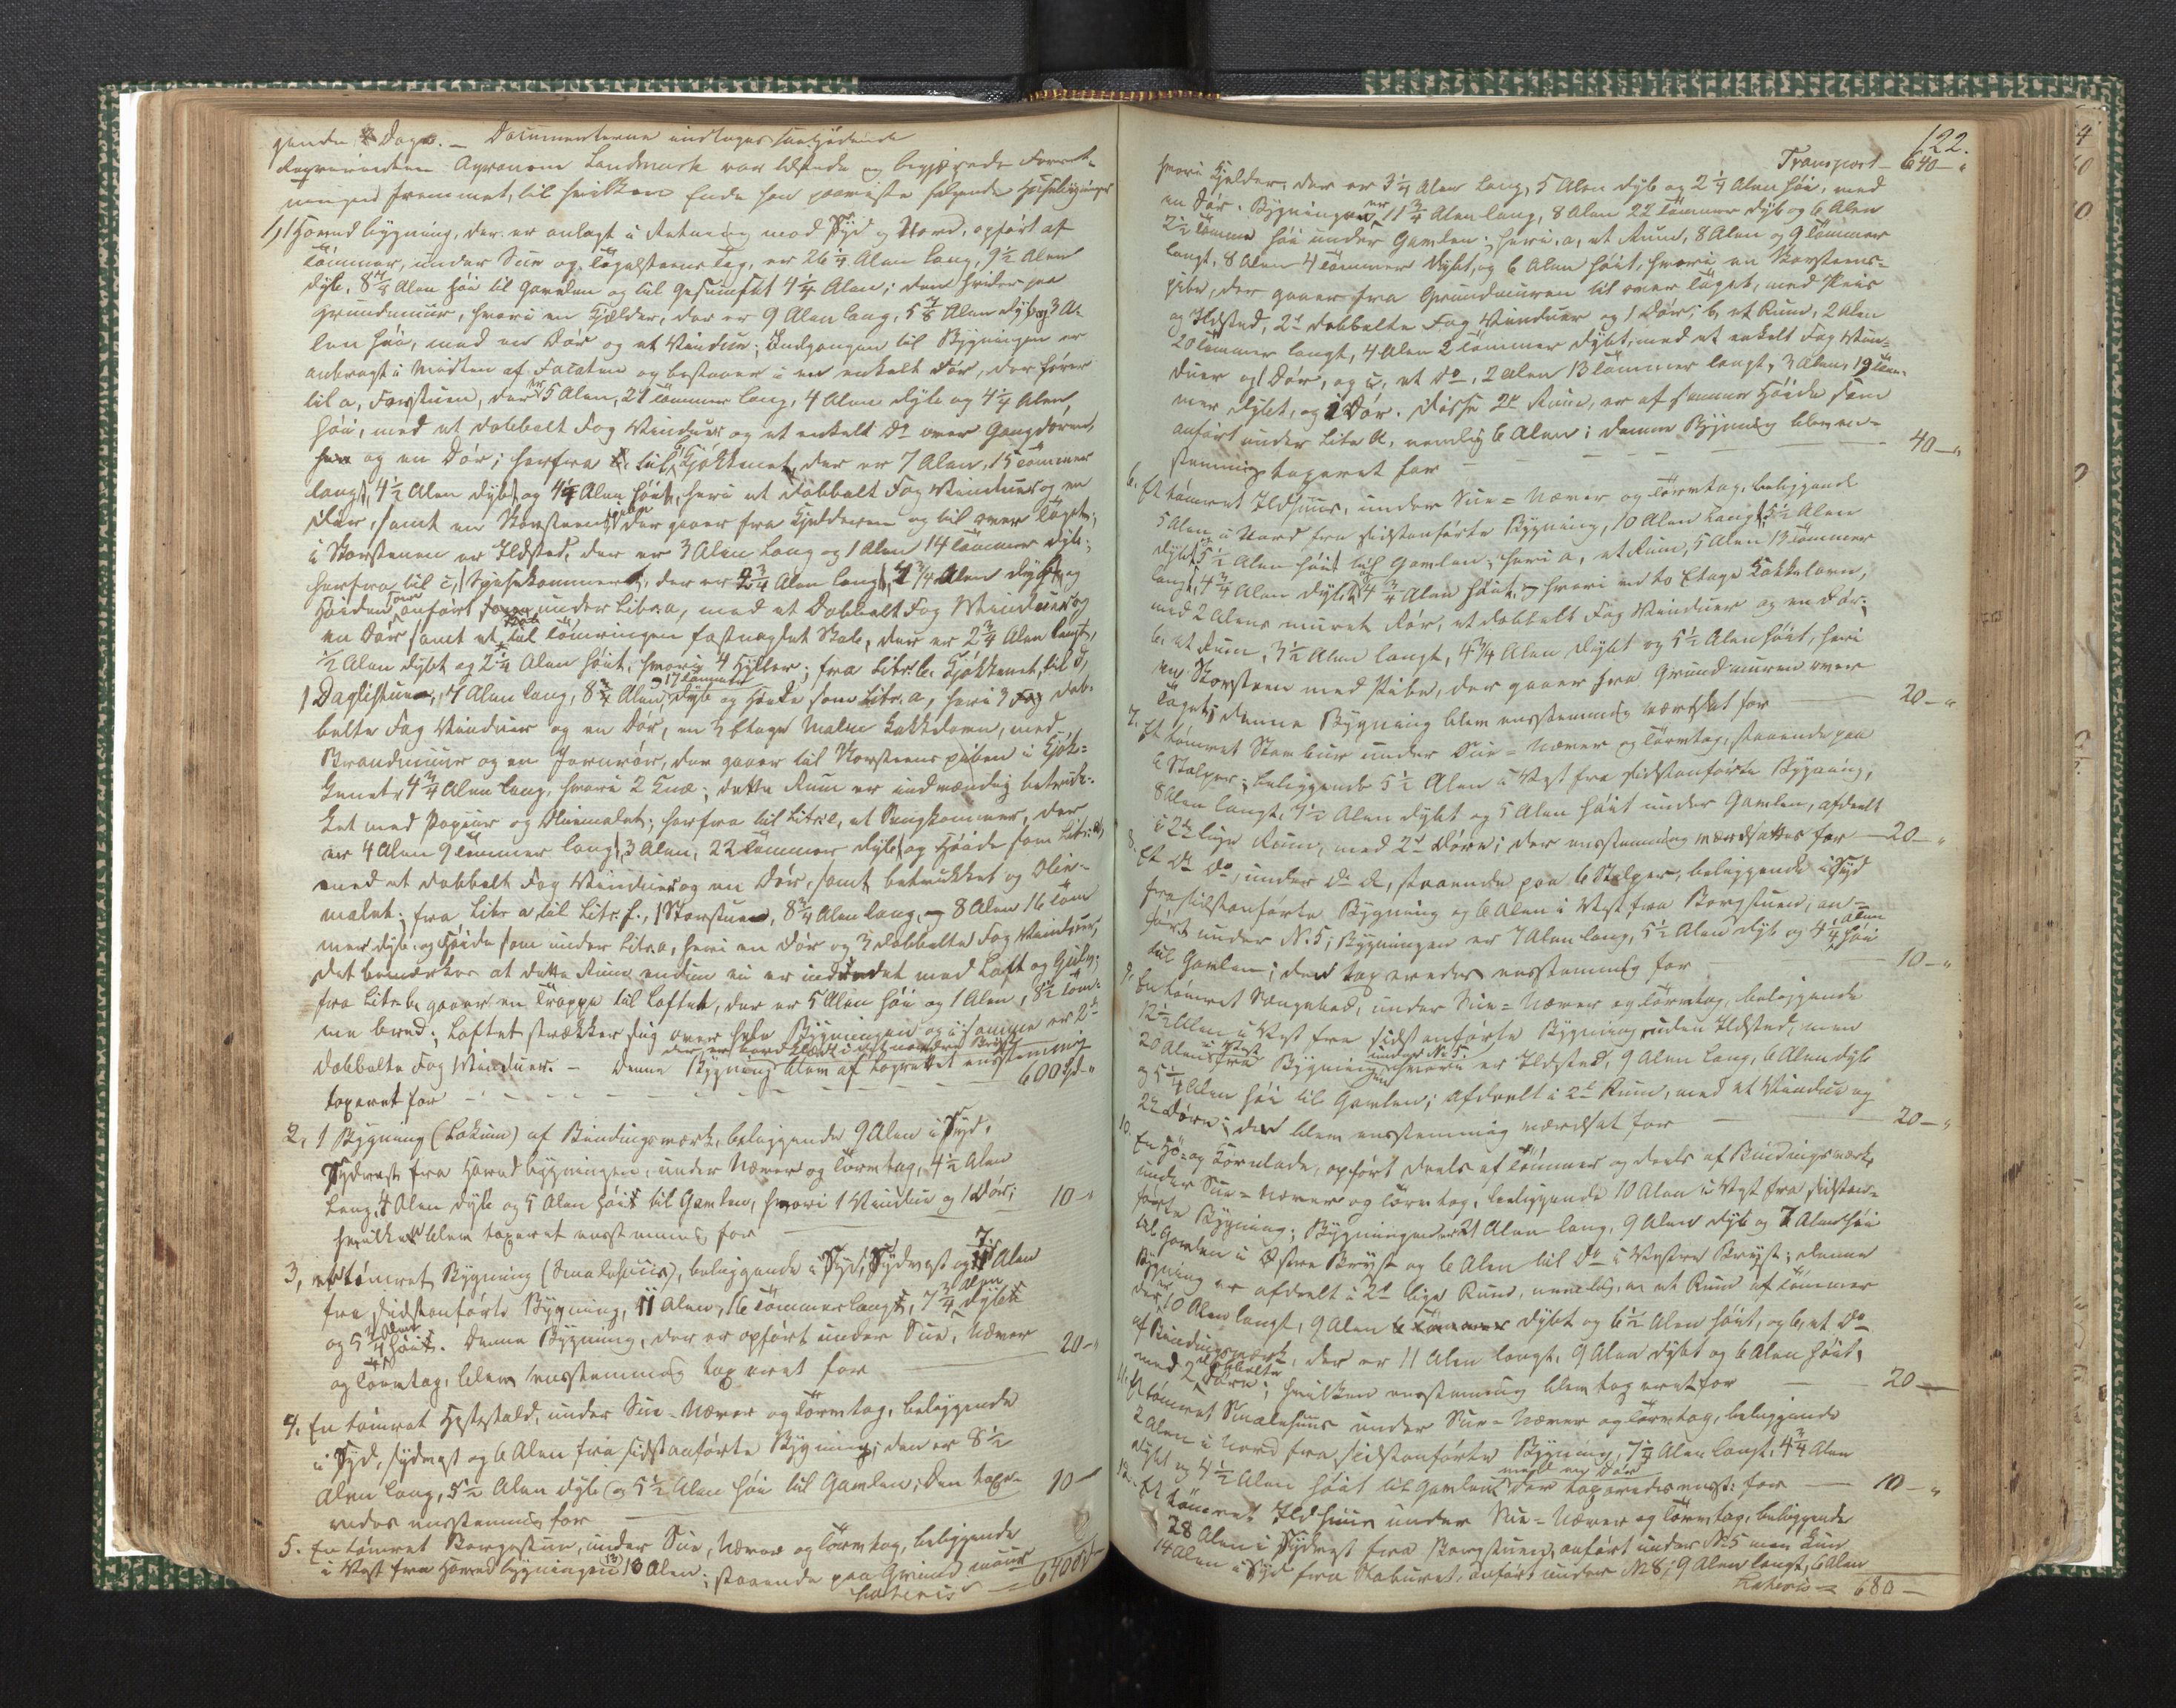 gende Dage. — Documenterne indtages saalydende
Agronom Landmark var tilstede og begjærede Forret-
ningen fremmet, til hvilken Ende han paaviste følgende Huusbygninger
1, 1 Hovedbygning, der er anlagt i Retning mod Syd og Nord, opført af
Tømmer, under Sue og Tegelsteens Tag, er 26 1/4 Alen lang, 9 1/2 Alen
dyb, 8 3/4 Alen høi til Gamlen og til Gesimset 4 1/4 Alen; den hviler paa
Grundmuur, hvori en Kjælder, der er 9 Alen lang, 5 7/8 Alen dyb og 3 A-
len høi, med en Dør og et Vindue; Indgangen til Bygningen er
anbragt i Midten af Facaden og bestaaer i en enkelt Dør, der fører
til a, Forstuen, der er 5 Alen, 21 Tommer lang, 4 Alen dyb og 4 1/4 Alen
høi, med et dobbelt Fag Vinduer og et enkelt Do over Gangdøren,
og en Dør; herfra til b, Kjøkkenet, der er 7 Alen, 15 Tommer
langt, 4 1/2 Alen dybt og 4 1/4 Alen høit, heri et dobbelt Fag Vinduer og en
Dør, samt en Skorsteenspibe der gaaer fra Kjelderen og til over Taget;
i Skorstenen er Ildsted, der er 3 Alen lang og 1 Alen 14 Tommer dyb;
herfra til c, 1 Spisekammer, der er 2 3/4 Alen langt, 4 3/4 Alen dybt og
Høiden som anført under Litr. a, med et Dobbelt Fag Vinduer og
en Dør samt et til Tømringen fastnaglet Skab, der er 2 3/4 Alen langt,
1/2 Alen dybt og 2 1/4 Alen høit, hvori 4 Hyller; fra Litr. b. Kjøkkenet, til d,
1 Daglistue, 7 Alen lang, 8 3/4 Alen, 17 Tommer dyb og Høide som Litr. a, heri 3 dob-
belte Fag Vinduer og en Dør, en 3 Etages Malm Kakkelovn, med
Brandmuur og en Jernrør, der gaaer til Skorsteenspiben i Kjøk-
kenet, 4 3/4 Alen lang, hvori 2 Knæ; dette Rum er indvændig betruk-
ket med Papiir og Oliemalet; herfra til Litr. e, et Sengkammer, der
er 4 Alen 9 Tommer langt, 3 Alen, 22 Tommer dybt og Høide som Litr. a,
med et dobbelt Fag Vinduer og en Dør, samt betrukket og Olie-
malet; fra Litr a til Litr. f., 1 Storstue, 8 3/4 Alen lang, 8 Alen 16 Tom-
mer dyb og Høide som under Litr. a, heri en Dør og 3 dobbelte Fag Vinduer,
det bemærkes at dette Rum endnu ei er indredet med Loft og Gulv;
fra Litr. b. gaaer en Trappe til Loftet, der er 5 Alen høi og 1 Alen, 5 1/2 Tom-
me bred; Loftet strækker sig over hele Bygningen og i samme er 2de
der er bordklædt i det nordre Bryst
dobbelte Fag Vinduer. — Denne Bygning blev af Lagrettet eenstemmig
taxeret for — 600 Spd „
2, 1 Bygning (Lokum) af Bindingsværk, beliggende 9 Alen i Syd,
Sydvest fra Hovedbygningen, under Næver og Törvtag, 4 1/2 Alen
lang, 4 Alen dyb og 5 Alen høi til Gamlen, hvori 1 Vindue og 1 Dør;
hvilket blev taxeret eenstemmig for — 10 „
3, et tømret Bygning (Smalehuus), beliggende i Syd, Sydvest og 7 Alen
fra sidstanførte Bygning, 11 Alen, 16 Tommer langt, 7 3/4 Alen dybt
og 5 3/4 Alen høit. Denne Bygning, der er opført under Sue, Næver
og Törvtag, blev eenstemmig taxeret for 20 „
4. En tømret Hestestald, under Sue-Næver og Törvtag, beliggende
i Syd, Sydvest og 6 Alen fra sidstanførte Bygning, den er 8 1/2
Alen lang, 5 1/2 Alen dyb og 5 1/2 Alen høi til Gamlen; den taxe-
redes eenstemmig for — 10 —
5. En tømret Borgestue, under Sue, Næver og Törvtag, beliggende
i Vest fra Hovedbygningen 13 Alen; staaende paa Grundmuur
Lateris — 640 Spd
122.
Transport — 640 — „
hvori Kjelder, der er 3 1/4 Alen lang, 5 Alen dyb og 2 1/4 Alen høi, med
en Dør. Bygningen er 11 3/4 Alen lang, 8 Alen 22 Tommer dyb og 6 Alen
2 1/2 Tomme høi under Gamlen; heri, a, et Rum, 8 Alen og 9 Tommer
langt, 8 Alen 4 Tommer dybt, og 6 Alen høit, hvori en Skorsteens-
pibe, der gaaer fra Grundmuren til over Taget, med
og Ildsted, 2de dobbelte Fag Vinduer og 1 Dør; b, et Rum, 2 Alen
20 Tommer langt, 4 Alen 2 Tommer dybt, med et enkelt Fag Vin-
duer og 1 Dør, og c, et do, 2 Alen 13 Tommer langt, 3 Alen, 19 Tom-
mer dybt, og 1 Dør. Disse 2de Rum, er af samme Høide som
anført under Litr a, nemlig 6 Alen; denne Bygning blev een-
stemmig taxeret for — 40 — „
6. Et tømret Ildhuus, under Sue-Næver og Törvtag, beliggende
5 Alen i Nord fra sidstanførte Bygning, 10 Alen langt, 5 1/2 Alen
dybt, 5 1/2 Alen høit til Gamlen; heri a, et Rum, 5 Alen 13 Tommer
langt, 4 3/4 Alen dybt og 4 3/4 Alen høit, hvori en to Etage Kakkelovn,
med 2 Alens muret Rør, et dobbelt Fag Vinduer og en Dør;
b. et Rum, 3 1/2 Alen langt, 4 3/4 Alen dybt og 5 1/2 Alen høit, heri
en Skorsteen med Pibe, der gaaer fra Grundmuren over
Taget; denne Bygning blev eenstemmig værdsat for — 20 — „
7. Et tømret Stabur under Sue-Næver og Törvtag, staaende paa
6 Stolper; beliggende 5 1/2 Alen i Vest fra sidstanførte Bygning,
8 Alen langt, 7 1/2 Alen dybt og 5 Alen høit under Gamlen, afdeelt
i 2de lige Rum, med 2de Dører; der eenstemmig værdsattes for — 20 — „
8. Et do do, under do do, staaende paa 6 Stolper, beliggende i Syd
fra sidstanførte Bygning og 6 Alen i Vest fra Borgstuen, an-
ført under No. 5; Bygningen er 7 Alen lang, 5 1/2 Alen dyb og 4 1/4 Alen høi
til Gamlen; den taxeredes eenstemmig for — 10 — „
9. En tømret, under Sue-Næver og Törvtag, beliggende
12 1/2 Alen i Vest fra sidstanførte Bygning uden Ildsted, men
20 Alen i Vest fra Bygningen under No 5 hvori er Ildsted, 9 Alen lang, 6 Alen dyb
og 5 1/4 Alen høi til Gamlen; afdeelt i 2de Rum, med et Vindue og
2de Dører; den blev eenstemmig værdsat for — 20 — „
10. En Hø- og Kornlade, opført deels af Tømmer og deels af Bindingsværk,
under Sue-Næver og Törvtag, beliggende 10 Alen i Vest fra sidstan-
førte Bygning; Bygningen er 21 Alen lang, 9 Alen dyb og 7 Alen høi
til Gamlen i Østre Bryst og 6 Alen til do i Vestre Bryst; denne
Bygning er afdeelt i 2de lige Rum, nemlig, a et Rum af Tømmer
der er 10 Alen langt, 9 Alen dybt og 6 1/2 Alen høit, og b, et do
af Bindingsværk, der er 11 Alen langt, 9 Alen dybt og 6 Alen høit,
med 2 dobbelte Dører; hvilken eenstemmig blev taxeret for — 20 —
11. Et tømret Smalehuus under Sue-Næver og Törvtag, beliggende
2 Alen i Nord fra sidstanførte Bygning, 7 1/4 Alen langt, 4 3/4 Alen
dybt og 4 1/2 Alen høit til Gamlen med en Dør der taxeredes eenst: for — 10 — „
12. Et tømret Ildhuus under Sue-Næver og Törvtag, beliggende
28 Alen i Sydvest fra Borgstuen, anført under No 5 men kun
14 Alen i Syd fra Staburet, anført under No 8; 9 Alen langt, 6 Alen
Lateris — 680 —